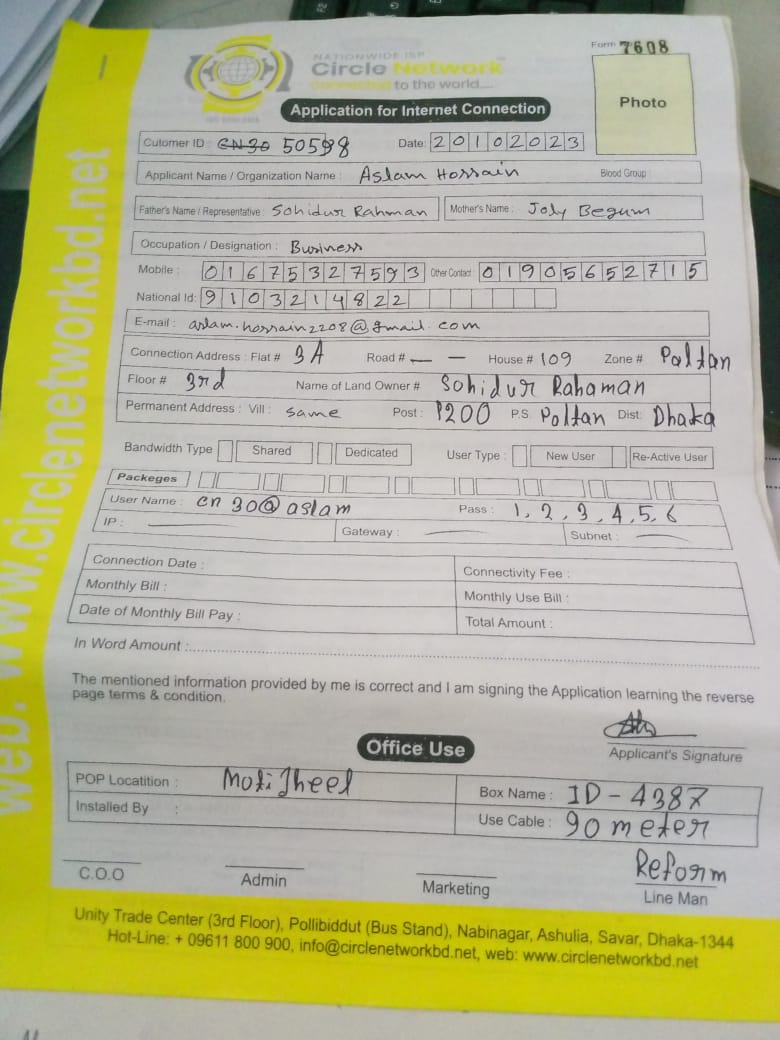 NATIONWIDE ISP
Circle Network
connected to the world....
Form 7608
Photo
Application for Internet Connection
Cutomer ID : 50598 Date: 20102023
Applicant Name / Organization Name : Aslam Hossain Blood Group :
Father's Name / Representative : Sohidur Rahman Mother's Name : Joly Begum
Occupation / Designation : Business
Mobile : 01675327593 Other Contact 01905652715
National Id: 9103214822
E-mail : aslam.hossain2208@gmail.com
Connection Address : Flat # 3A Road # — — House # 109 Zone # Paltan
Floor # 3rd Name of Land Owner # Sohidur Rahaman
Permanent Address : Vill : same Post : 1200 P.S. Poltan Dist: Dhaka
Bandwidth Type Shared Dedicated User Type : New User Re-Active User
Packeges
User Name : cn30@aslam Pass : 1,2,3,4,5,6
IP : — Gateway : — Subnet : —
Connection Date : Connectivity Fee :
Monthly Bill : Monthly Use Bill :
Date of Monthly Bill Pay : Total Amount :
In Word Amount :
The mentioned information provided by me is correct and I am signing the Application learning the reverse
page terms & condition.
Applicant's Signature
Office Use
POP Locatition : MotiJheel Box Name : ID-4387
Installed By : Use Cable : 90 meter
Reform
C.O.O Admin Marketing Line Man
Unity Trade Center (3rd Floor), Pollibiddut (Bus Stand), Nabinagar, Ashulia, Savar, Dhaka-1344
Hot-Line: + 09611 800 900, info@circlenetworkbd.net, web: www.circlenetworkbd.net
web: www.circlenetworkbd.net